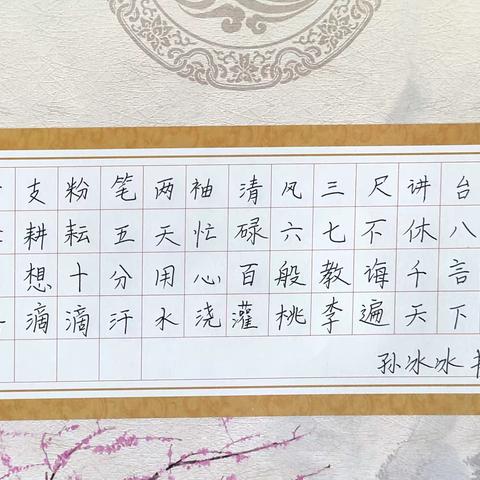 支粉笔两袖清风三尺讲台
耕耘五天忙碌六七不休八
想十分用心百般教诲千言
滴滴汗水浇灌桃李遍天下
孙冰冰